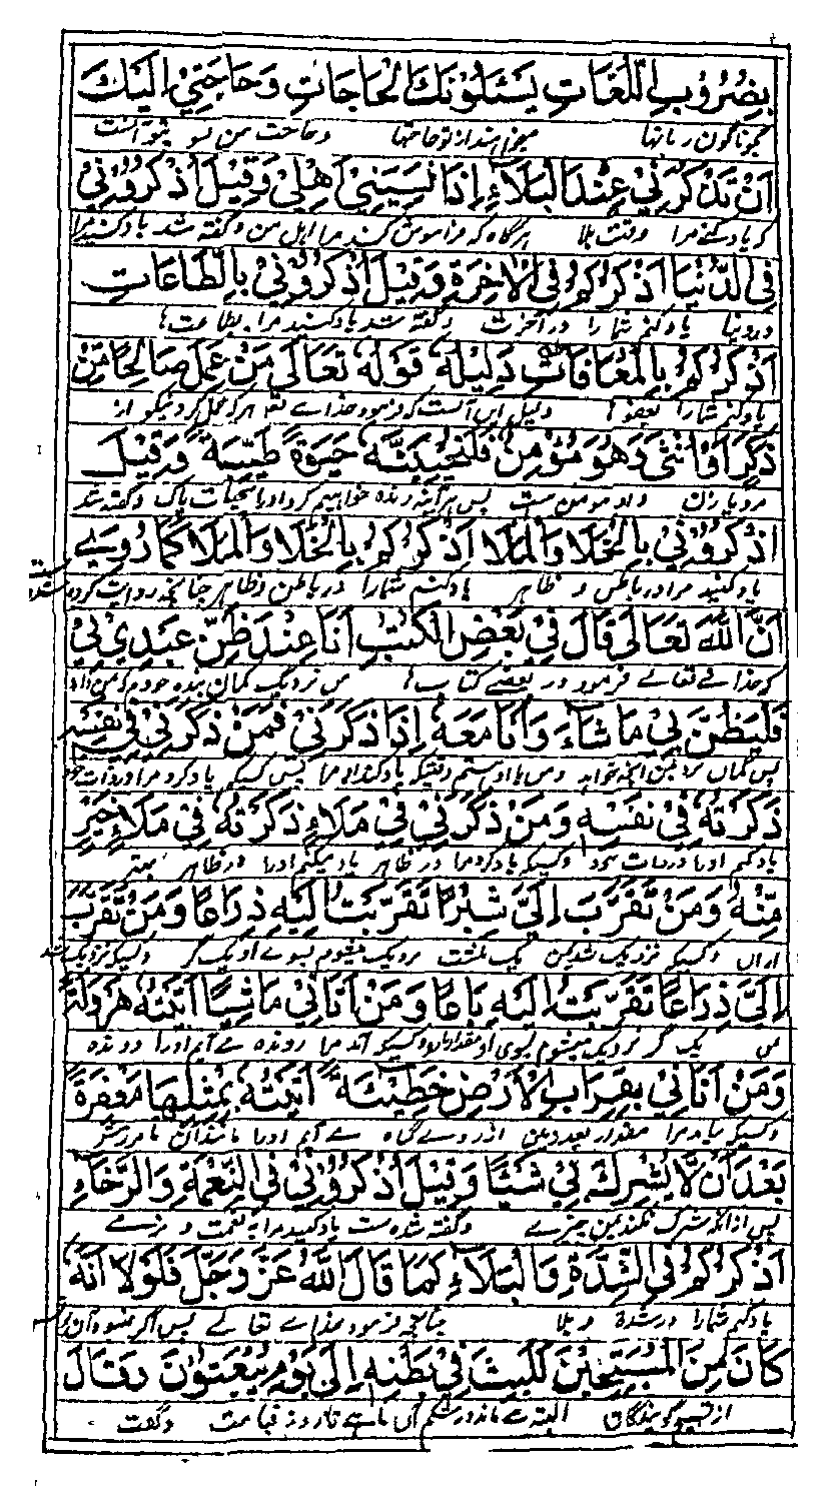 بِضُرُوبِ اللُّغَاتِ يَسْئَلُوْنَكَ الْحَاجَاتِ وَحَاجَتِيْ اِلَيْكَ
بگوناگون زبانها میخواهند از تو حاجتها و حاجت من بسوی تو آنست
اَنْ تَذْكُرَنِيْ عِنْدَ الْبَلَاءِ اِذَا نَسِيَنِيْ اَهْلِيْ وَقِيْلَ اُذْكُرُوْنِيْ
که یاد کنی مرا وقت بلا هرگاه که فراموش کنند مرا اهل من و گفته شد یاد کنید مرا
فِي الدُّنْيَا اَذْكُرْكُمْ فِي الْاٰخِرَةِ وَقِيْلَ اُذْكُرُوْنِيْ بِالطَّاعَاتِ
در دنیا یاد کنم شما را در آخرت و گفته شد یاد کنید مرا بطاعتها
اَذْكُرْكُمْ بِالْمُعَافَاتِ دَلِيْلُهٗ قَوْلُهٗ تَعَالٰى مَنْ عَمِلَ صَالِحًا مِّنْ
یاد کنم شما را بعفوها دلیل این آنست که فرمود خدای تعالی هر که عمل کرد نیکو از
ذَكَرٍ اَوْ اُنْثٰى وَهُوَ مُؤْمِنٌ فَلَنُحْيِيَنَّهٗ حَيٰوةً طَيِّبَةً وَقِيْلَ
مرد یا زن و او مومن ست پس هر آینه زنده خواهیم کرد او را بحیات پاک و گفته شد
اُذْكُرُوْنِيْ بِالْخَلَا وَالْمَلَا اَذْكُرْكُمْ بِالْخَلَا وَالْمَلَا كَمَا رُوِيَ
یاد کنید مرا در باطن و ظاهر یاد کنم شما را در باطن و ظاهر چنانچه روایت کرده شده است
اَنَّ اللّٰهَ تَعَالٰى قَالَ فِيْ بَعْضِ الْكُتُبِ اَنَا عِنْدَ ظَنِّ عَبْدِيْ بِيْ
که خدای تعالی فرمود در بعضی کتابها من نزدیک گمان بنده خودم
فَلْيَظُنَّ بِيْ مَا شَاءَ وَاَنَا مَعَهٗ اِذَا ذَكَرَنِيْ فَمَنْ ذَكَرَنِيْ فِيْ نَفْسِهٖ
پس گمان برد بمن آنچه خواهد و من با او هستم وقتیکه یاد کند او مرا پس کسیکه یاد کرد مرا در ذات خود
ذَكَرْتُهٗ فِيْ نَفْسِهٖ وَمَنْ ذَكَرَنِيْ فِيْ مَلَاءٍ ذَكَرْتُهٗ فِيْ مَلَاءٍ خَيْرٍ
یاد کنم او را در ذات خود و کسیکه یاد کرد مرا در ظاهر یاد میکنم او را در ظاهر بهتر
مِّنْهُ وَمَنْ تَقَرَّبَ اِلَيَّ شِبْرًا تَقَرَّبْتُ اِلَيْهِ ذِرَاعًا وَمَنْ تَقَرَّبَ
از آن و کسیکه نزدیک شد بمن یک بلشت نزدیک میشوم بسوی او یک گز و کسیکه نزدیک شد
اِلَيَّ ذِرَاعًا تَقَرَّبْتُ اِلَيْهِ بَاعًا وَمَنْ اَتَانِيْ مَاشِيًا اَتَيْتُهٗ هَرْوَلَةً
من یک گز نزدیک میشوم بسوی او مقدار باع و کسیکه آمد مرا رونده می آیم او را دونده
وَمَنْ اَتَانِيْ بِقِرَابِ الْاَرْضِ خَطِيْئَةً اَتَيْتُهٗ بِمِثْلِهَا مَغْفِرَةً
و کسیکه بیاید مرا مقدار زمین از روی گناه می آیم او را مانند آن بآمرزش
بَعْدَ اَنْ لَّا يُشْرِكَ بِيْ شَيْئًا وَقِيْلَ اُذْكُرُوْنِيْ فِي النِّعْمَةِ وَالرَّخَاءِ
پس از آنکه شرک نکند بمن چیزی و گفته شده ست یاد کنید مرا به نعمت و نرمی
اَذْكُرْكُمْ فِي الشِّدَّةِ وَالْبَلَاءِ كَمَا قَالَ اللّٰهُ عَزَّ وَجَلَّ فَلَوْلَا اَنَّهٗ
یاد کنم شما را در شدة و بلا چنانچه فرمود خدای تعالی پس اگر نبودی آن
كَانَ مِنَ الْمُسَبِّحِيْنَ لَلَبِثَ فِيْ بَطْنِهٖ اِلٰى يَوْمِ يُبْعَثُوْنَ وَقَالَ
از تسبیح گویندگان البته می ماند در شکم آن ماهی تا روز قیامت و گفت